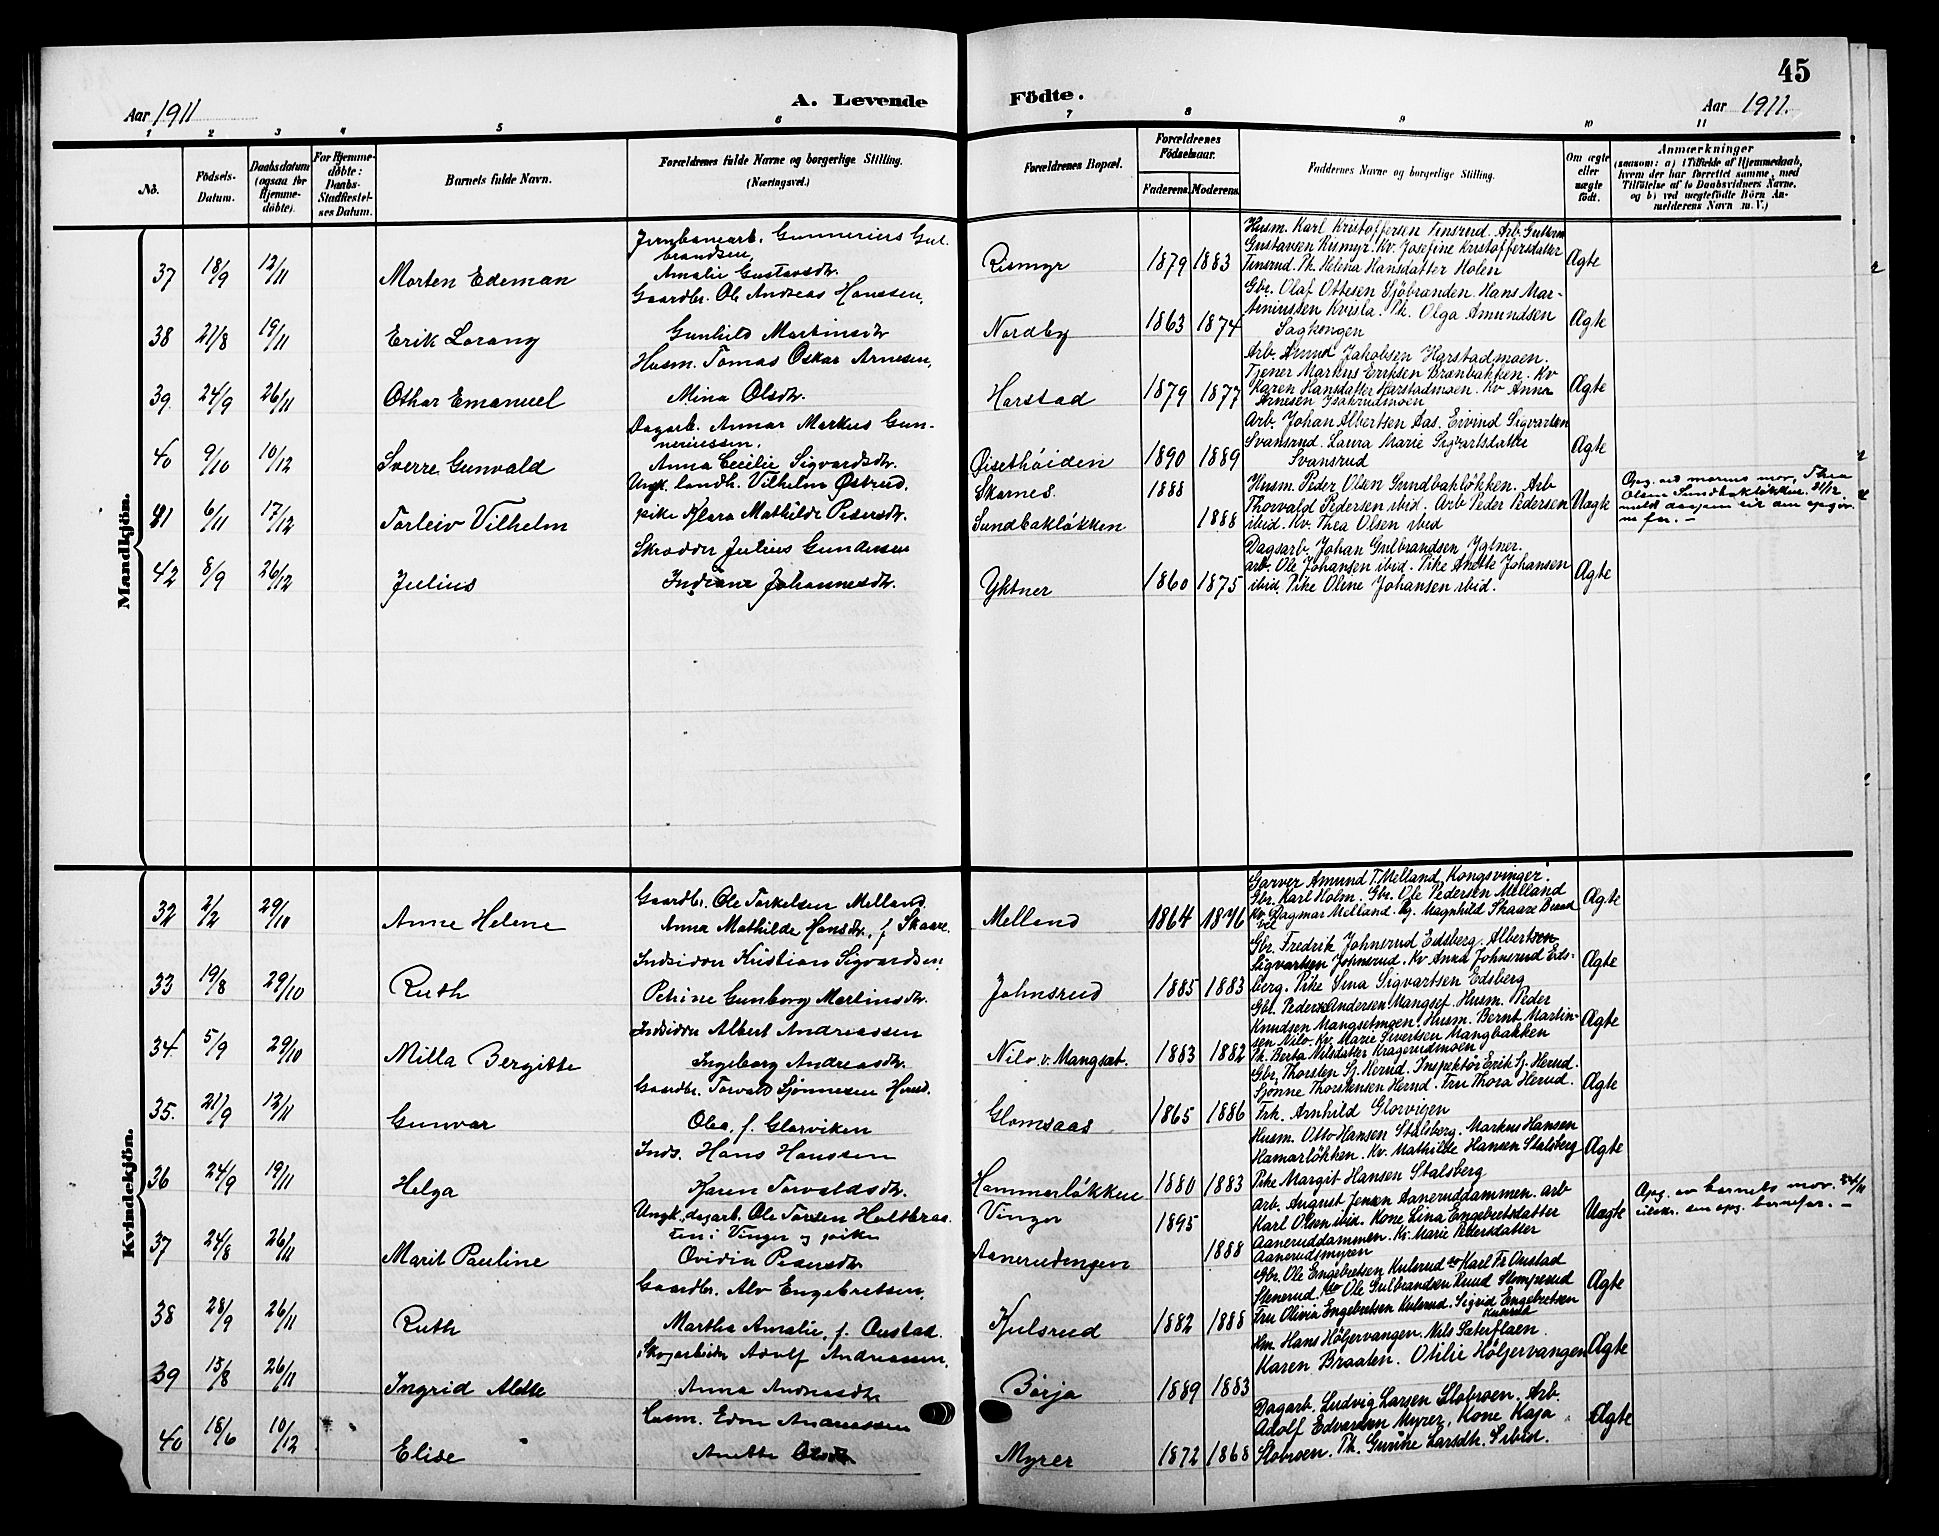 45
Aar 1911
A. Levende Födte.
Aar 1911.
1 2 3 4 5 6 7 8 9 10 11
No.
Födsels-
Datum.
Daabsdatum
(ogsaa for
Hjemme-
döbte).
For Hjemme-
döbte:
Daabs-
Stadfæstel-
ses Datum.
Barnets fulde Navn.
Forældrenes fulde Navne og borgerlige Stilling.
(Næringsvei.)
Forældrenes Bopæl.
Forældrenes
Födselsaar.
Faderens. Moderens.
Faddernes Navne og borgerlige Stilling.
Om ægte
eller
uægte
födt.
Anmærkninger
(saasom: a) i Tilfælde af Hjemmedaab,
hvem der har forrettet samme, med
Tilföielse af to Daabsvidners Navne,
og b) ved uægtefödte Börn An-
melderens Navn m. V.)
Mandkjön.
37 18/9 12/11 Morten Edeman
Jernbanearb. Gunnerius Gul-
brandsen,
Amalie Gustavsdtr.
Rismyr 1879 1883
Husm. Karl Kristoffersen Tinsrud. Arb. Guttorm
Gustavsen Rismyr. Kv. Josefine Kristoffersdatter
Tinsrud. Pk. Helena Hansdatter Holen
Ægte
38 21/8 19/11 Erik Lorang
Gaardbr. Ole Andreas Hanssen,
Gunhild Martinsdtr
Nordby 1863 1874
Gbr. Olaf Ottesen Sjöbranden. Hans Mar-
tiniussen Kvisla. Pk. Olga Amundsen
Sagkongen
Ægte
39. 24/9 26/11 Othar Emanuel
Husm. Tomas Oskar Arnesen,
Mina Olsdtr.
Harstad 1879 1877
Arb. Amund Jakobsen Harstadmoen.
Tjener Markus Eriksen Brænbakken. Kv
Karen Hansdatter Harstadmoen. Kv Anna
Arnesen Isakrudmoen
Ægte
40 9/10 10/12 Sverre Gunvald
Dagarb. Annar Markus Gun-
neriussen,
Anna Cecilie Sigvardsdtr.
Øisethöiden 1890 1889
Arb. Johan Albertsen Aas. Eivind Sigvartsen
Svansrud. Laura Marie Sigvartsdatter
Svansrud
Ægte
41 6/11 17/12 Torleiv Vilhelm
Ungk. landh. Vilhelm Østrud,
pike Klara Mathilde Pedersdtr.
Skarnes. 1888
Sundbakløkken 1888
Husm. Peder Olsen Sundbakløkken. Arb
Thorvald Pedersen ibid. Arb Peder Pedersen
ibid. Kv. Thea Olsen ibid
Uægte
Opg. ved morens mor, Thea
Olsen Sundbakløkken. 31/12
42 8/9 26/12 Julius
Skrædder Julius Gundersen
Indiana Johannesdtr.
Yktner 1860 1875
Dagsarb. Johan Gulbrandsen Igtner.
arb. Ole Johansen ibid. Pike Anette Johansen
ibid. Pike Oline Johansen ibid.
Ægte
Kvindekjön.
32 2/2 29/10 Anne Helene
Gaardbr. Ole Torkelsen Melland
Anna Mathilde Hansdtr., f. Skaare.
Melland 1864 1876
Garver Amund T. Melland, Kongsvinger.
Gbr. Karl Holm. Gbr. Ole Pedersen Melland
Kv. Dagmar Melland. Magnhild Skaare
Ægte
33 19/8 29/10 Ruth
Indsidder Kristian Sigvardsen,
Petrine Gunborg Martinsdtr.
Johnsrud 1885 1883
Gbr. Fredrik Johnsrud Edsberg. Albertsen
Sigvartsen Johnsrud. Kv Anna Johnsrud Eds-
berg. Pike Lina Sigvartsen Edsberg
Ægte
34. 5/9 29/10 Milla Bergitte
Indsidder Albert Andreassen
Ingeborg Andreasdtr.
Nilo v. Mangset. 1883 1882
Gbr. Peder Andersen Mangset. Husm. Peder
Knudsen Mangsetmoen. Husm. Bernt Martin-
sen Nilo. Kv. Marie Sivertsen Mangbakken
Pk. Berta Nilsdatter Kragerudmoen
Ægte
35. 21/9 12/11 Gunvor
Gaardbr. Torvald Sjønnesen Herud.
Olea, f. Glorviken
Glomsaas 1865 1886
Gbr. Thorsten Sj. Herud. Inspektör Erik Sj. Herud.
Sjønne Thorstensen Herud. Fru Thora Herud.
Frk. Arnhild Glorvigen
Ægte
36 24/9 19/11 Helga
Inds. Hans Hanssen
Karen Torvaldsdtr.
Hammerløkken 1880 1883
Husm. Otto Hansen Stalsberg. Markus Hansen
Hamarløkken. Kv. Mathilde Hansen Stalsberg
Pike Margit Hansen Stalsberg
Ægte
37 24/8 26/11 Marit Pauline
Ungk. dagarb. Ole Torsen Holtbraa-
ten i Vinger og pike
Ovidia Pedersdtr.
Vinger 1895
Aanerudengen 1888
Arb. August Jensen Aaneruddammen. arb
Karl Olsen ibid. Kone Lina Engebretsdatter
Aaneruddammen. Kv. Marie Pedersdatter
Aanerudsmyren
Uægte
Opg. av barnets mor. 24/11
tilskr. den opg. barnefar. –
38 28/9 26/11 Ruth
Gaardbr. Alv Engebretsen,
Martha Amalie, f. Oustad.
Kjulsrud 1882 1888
Gbr. Ole Engebretsen Kulsrud do Karl Fr. Oustad
Stenerud. do Ole Gulbrandsen Ruud Slomperud
Fru Olivia Engebretsen Kulsrud. Sigrid Engebretsen
Kulsrud
Ægte
39 13/8 26/11 Ingrid Alette
Skogarbeider Adolf Andreassen,
Anna Andreasdtr
Børja 1889 1883
Hm. Hans Höljervangen. Nils Sæterflaen.
Karen Braaten. Otilie Höljervangen
Ægte
40 18/6 10/12 Elise
Husm. Edvin Andreassen
Anette Olsdtr.
Myrer 1872 1868
Dagarb. Ludvig Larsen Slobroen. Arb.
Adolf Edvardsen Myrer, Kone Kaja
Slobroen. Pk. Gunine Larsdtr. Sibid.
Ægte